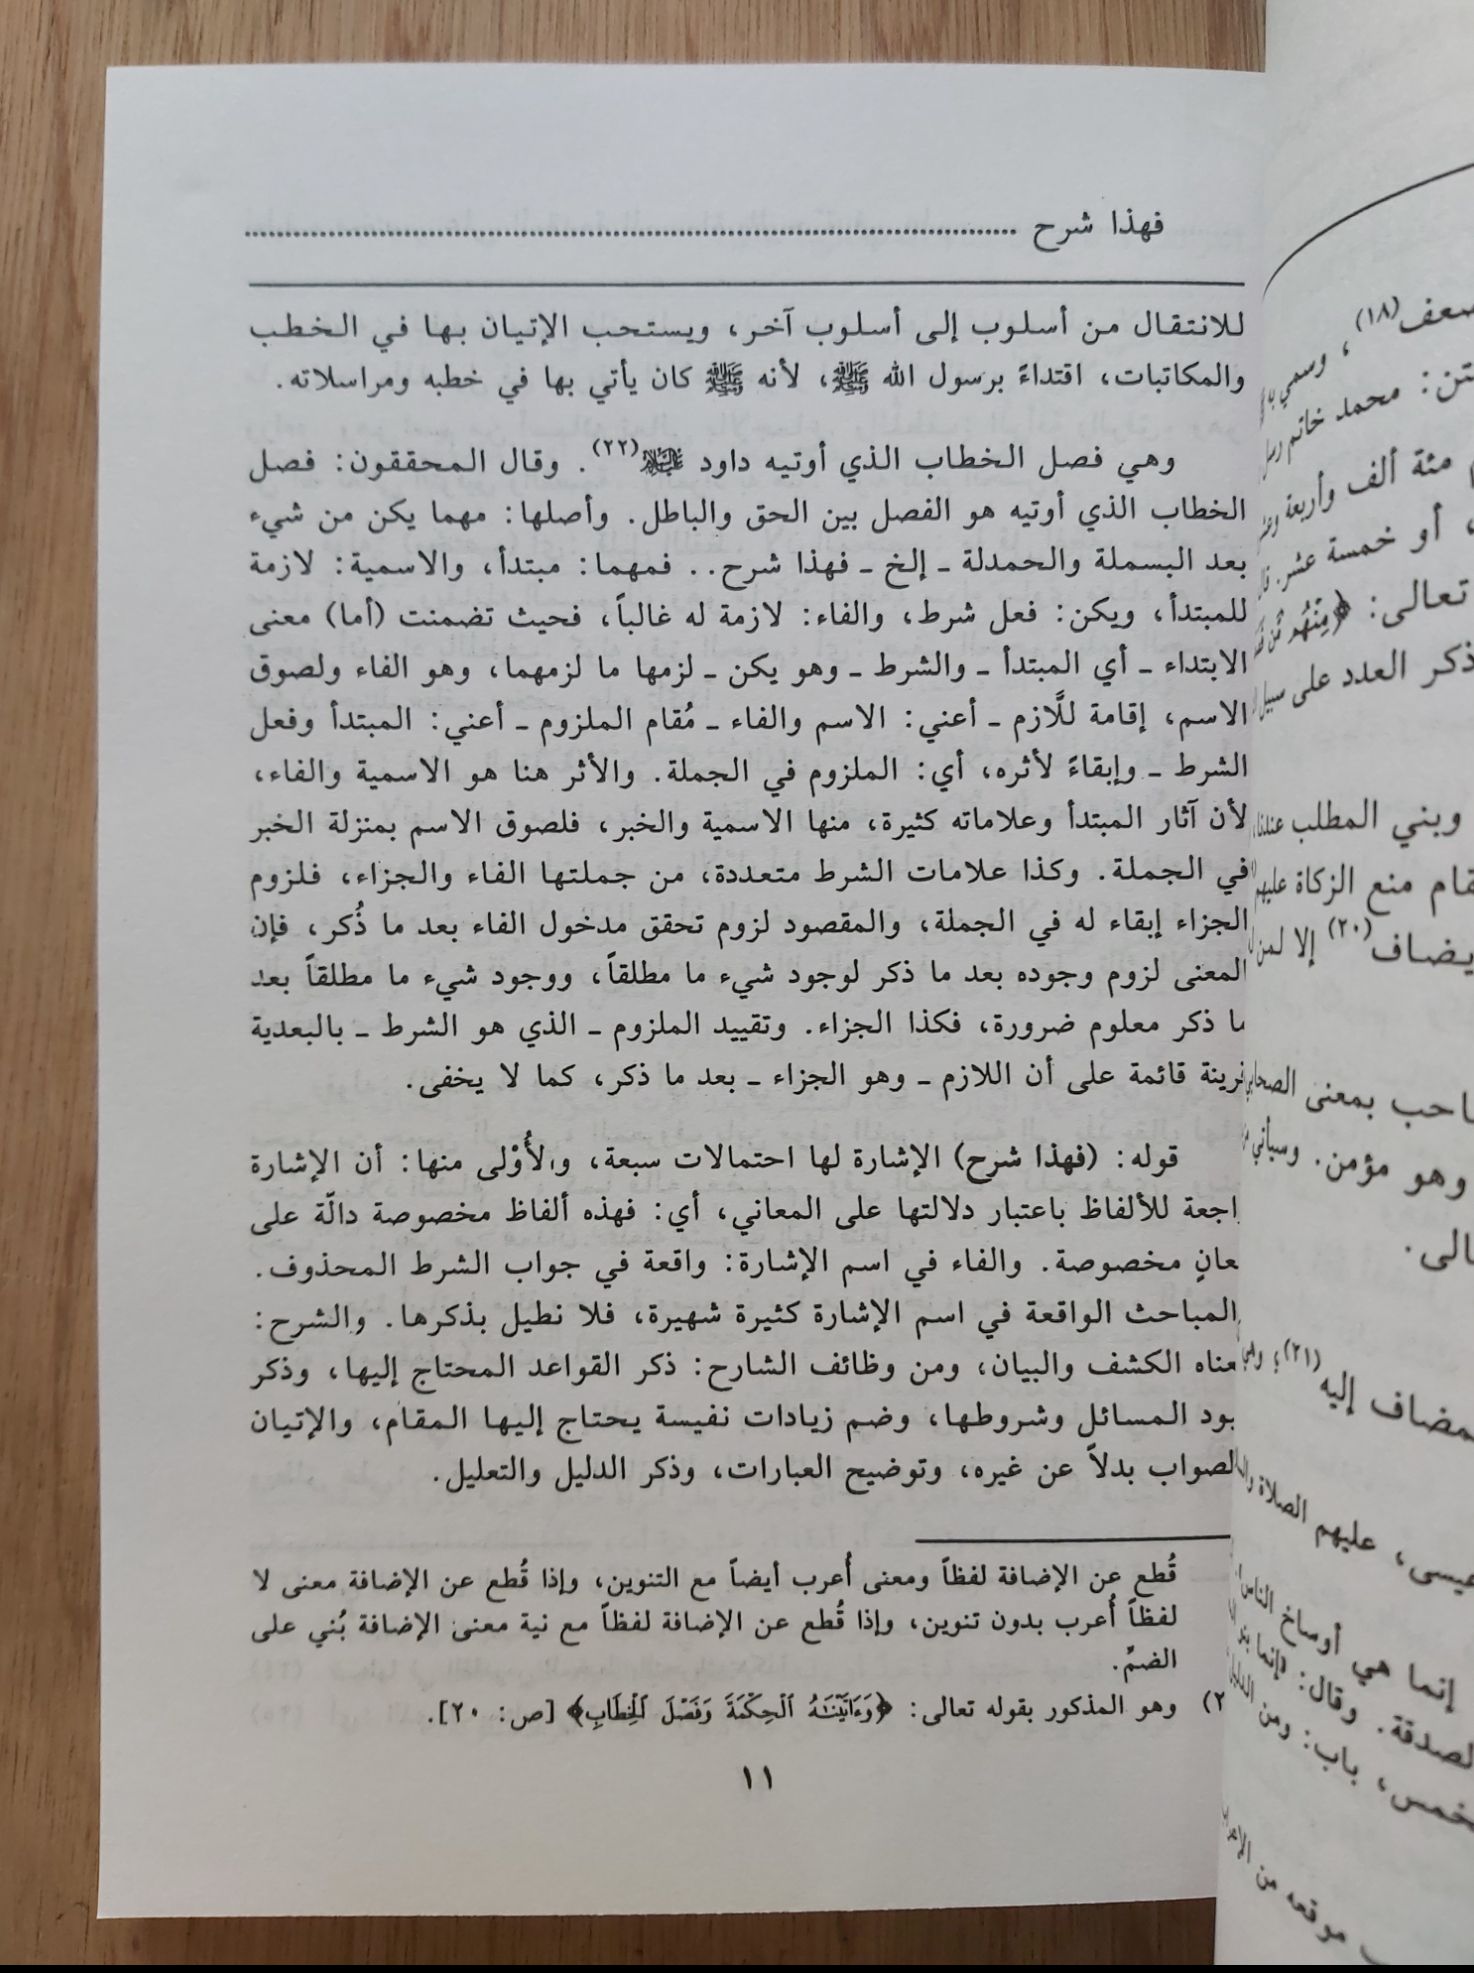 فهذا شرح ........................................................................
للانتقال من أسلوب إلى أسلوب آخر، ويستحب الإتيان بها في الخطب
والمكاتبات، اقتداءً برسول الله ﷺ، لأنه ﷺ كان يأتي بها في خطبه ومراسلاته.
وهي فصل الخطاب الذي أوتيه داود عليه السلام(٢٢). وقال المحققون: فصل
الخطاب الذي أوتيه هو الفصل بين الحق والباطل. وأصلها: مهما يكن من شيء
بعد البسملة والحمدلة ـ إلخ ـ فهذا شرح.. فمهما: مبتدأ، والاسمية: لازمة
للمبتدأ، ويكن: فعل شرط، والفاء: لازمة له غالباً، فحيث تضمنت (أما) معنى
الابتداء ـ أي المبتدأ ـ والشرط ـ وهو يكن ـ لزمها ما لزمهما، وهو الفاء ولصوق
الاسم، إقامة للَّازم ـ أعني: الاسم والفاء ـ مُقام الملزوم ـ أعني: المبتدأ وفعل
الشرط ـ وإبقاءً لأثره، أي: الملزوم في الجملة. والأثر هنا هو الاسمية والفاء،
لأن آثار المبتدأ وعلاماته كثيرة، منها الاسمية والخبر، فلصوق الاسم بمنزلة الخبر
في الجملة. وكذا علامات الشرط متعددة، من جملتها الفاء والجزاء، فلزوم
الجزاء إبقاء له في الجملة، والمقصود لزوم تحقق مدخول الفاء بعد ما ذُكر، فإن
المعنى لزوم وجوده بعد ما ذكر لوجود شيء ما مطلقاً، ووجود شيء ما مطلقاً بعد
ما ذكر معلوم ضرورة، فكذا الجزاء. وتقييد الملزوم ـ الذي هو الشرط ـ بالبعدية
قرينة قائمة على أن اللازم ـ وهو الجزاء ـ بعد ما ذكر، كما لا يخفى.
قوله: (فهذا شرح) الإشارة لها احتمالات سبعة، والأُوْلى منها: أن الإشارة
راجعة للألفاظ باعتبار دلالتها على المعاني، أي: فهذه ألفاظ مخصوصة دالّة على
معانٍ مخصوصة. والفاء في اسم الإشارة: واقعة في جواب الشرط المحذوف.
والمباحث الواقعة في اسم الإشارة كثيرة شهيرة، فلا نطيل بذكرها. والشرح:
معناه الكشف والبيان، ومن وظائف الشارح: ذكر القواعد المحتاج إليها، وذكر
قيود المسائل وشروطها، وضم زيادات نفيسة يحتاج إليها المقام، والإتيان
الصواب بدلاً عن غيره، وتوضيح العبارات، وذكر الدليل والتعليل.
قُطع عن الإضافة لفظاً ومعنى أُعرب أيضاً مع التنوين، وإذا قُطع عن الإضافة معنى لا
لفظاً أُعرب بدون تنوين، وإذا قُطع عن الإضافة لفظاً مع نية معنى الإضافة بُني على
الضمّ.
٢) وهو المذكور بقوله تعالى: ﴿وَءَاتَيْنَٰهُ ٱلْحِكْمَةَ وَفَصْلَ ٱلْخِطَابِ﴾ [ص: ٢٠].
١١
(١٨)، وسمي
تن: محمد خاتم
مئة ألف وأربعة
، أو خمسة عشر.
تعالى: ﴿مِنْهُم مَّن
ذكر العدد على سبيل
وبني المطلب عندنا،
منع الزكاة عليهم
يضاف(٢٠) إلا لمن
بمعنى
وهو مؤمن. وسيأتي
إليه(٢١)؛
عليهم الصلاة
إنما هي أوساخ الناس
الصدقة. وقال: «إنما بنو
باب: ومن
موقعه من